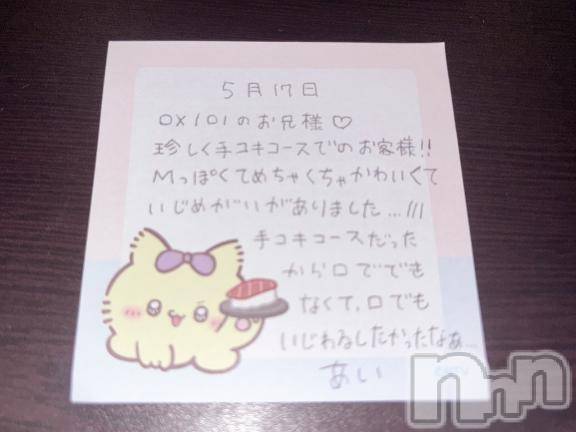 5月17日
OX101のお兄様♡
珍しく手コキコースでのお客様!!
Mっぽくてめちゃくちゃかわいくて
いじめがいがありました...///
手コキコースだった
から口でできて
なくて、口でも
いじわるしたかったなぁ...
あい
nnn